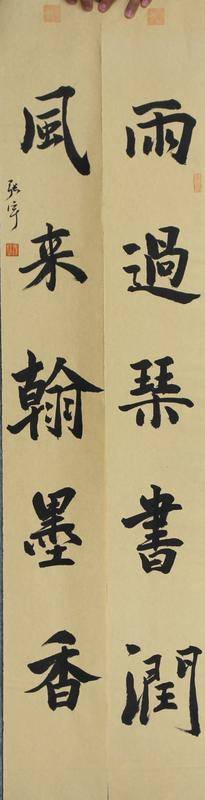 雨過琹書潤
風来翰墨香